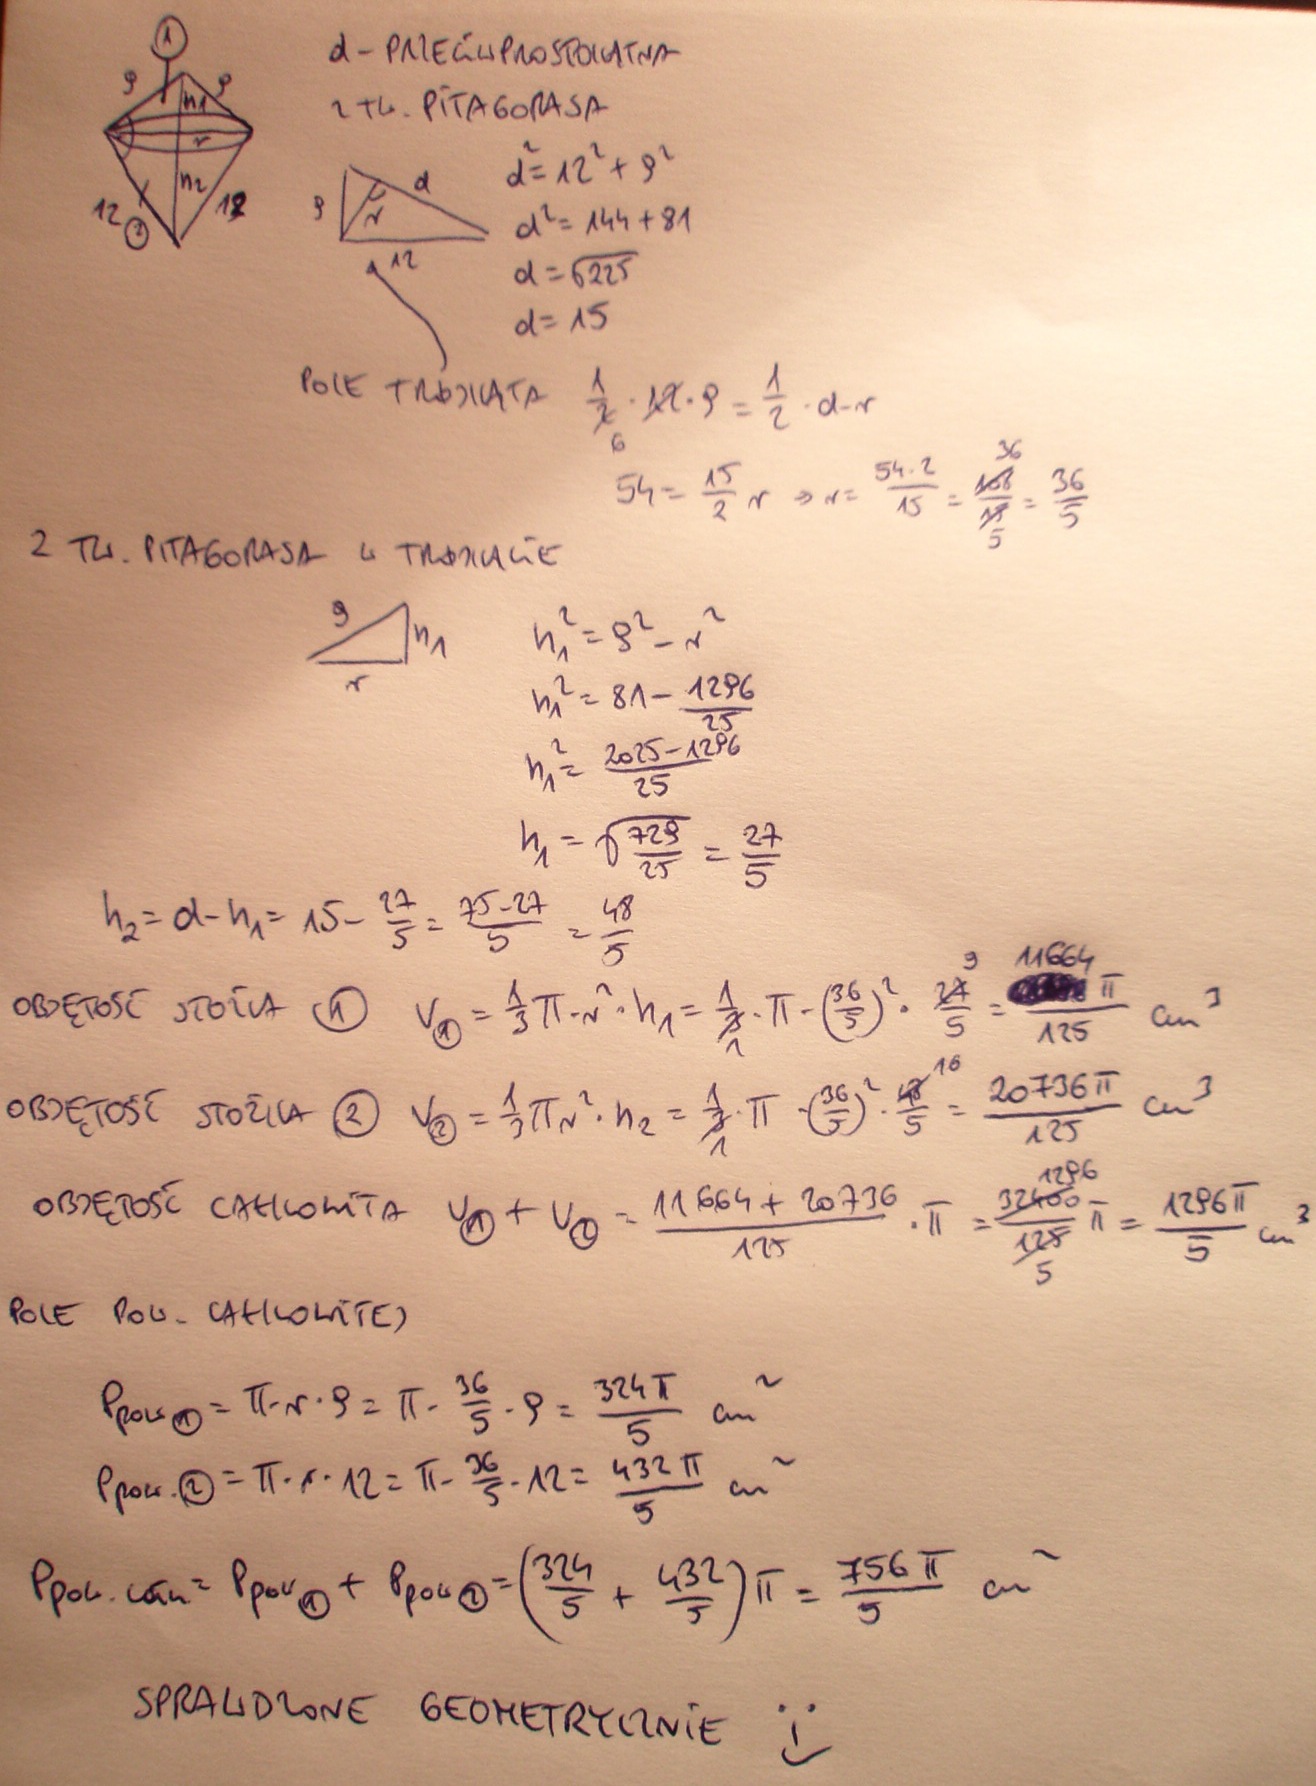 1
9 9
h1
r
h2
12 12
2
d - PRZECIWPROSTOKĄTNA
Z TW. PITAGORASA
9 d
r
12
d² = 12² + 9²
d² = 144 + 81
d = √225
d = 15
POLE TRÓJKĄTA 1/2 · 12 · 9 = 1/2 · d · r
6
54 = 15/2 r ⇒ r = 54·2/15 = 108/15 = 36/5
36
5
Z TW. PITAGORASA W TRÓJKĄCIE
9 h1
r
h1² = 9² - r²
h1² = 81 - 1296/25
h1² = 2025-1296/25
h1 = √729/25 = 27/5
h2 = d - h1 = 15 - 27/5 = 75-27/5 = 48/5
OBJĘTOŚĆ STOŻKA ① V① = 1/3 π · r² · h1 = 1/3 · π · (36/5)² · 27/5 = 11664 π/125 cm³
9
1
OBJĘTOŚĆ STOŻKA ② V② = 1/3 π r² · h2 = 1/3 · π · (36/5)² · 48/5 = 20736 π/125 cm³
16
1
OBJĘTOŚĆ CAŁKOWITA V① + V② = 11664 + 20736/125 · π = 32400/125 π = 1296 π/5 cm³
1296
5
POLE POW. CAŁKOWITEJ
Ppow① = π · r · 9 = π · 36/5 · 9 = 324 π/5 cm²
Ppow.② = π · r · 12 = π · 36/5 · 12 = 432 π/5 cm²
Ppow. całk = Ppow① + Ppow② = (324/5 + 432/5) π = 756 π/5 cm²
SPRAWDZONE GEOMETRYCZNIE